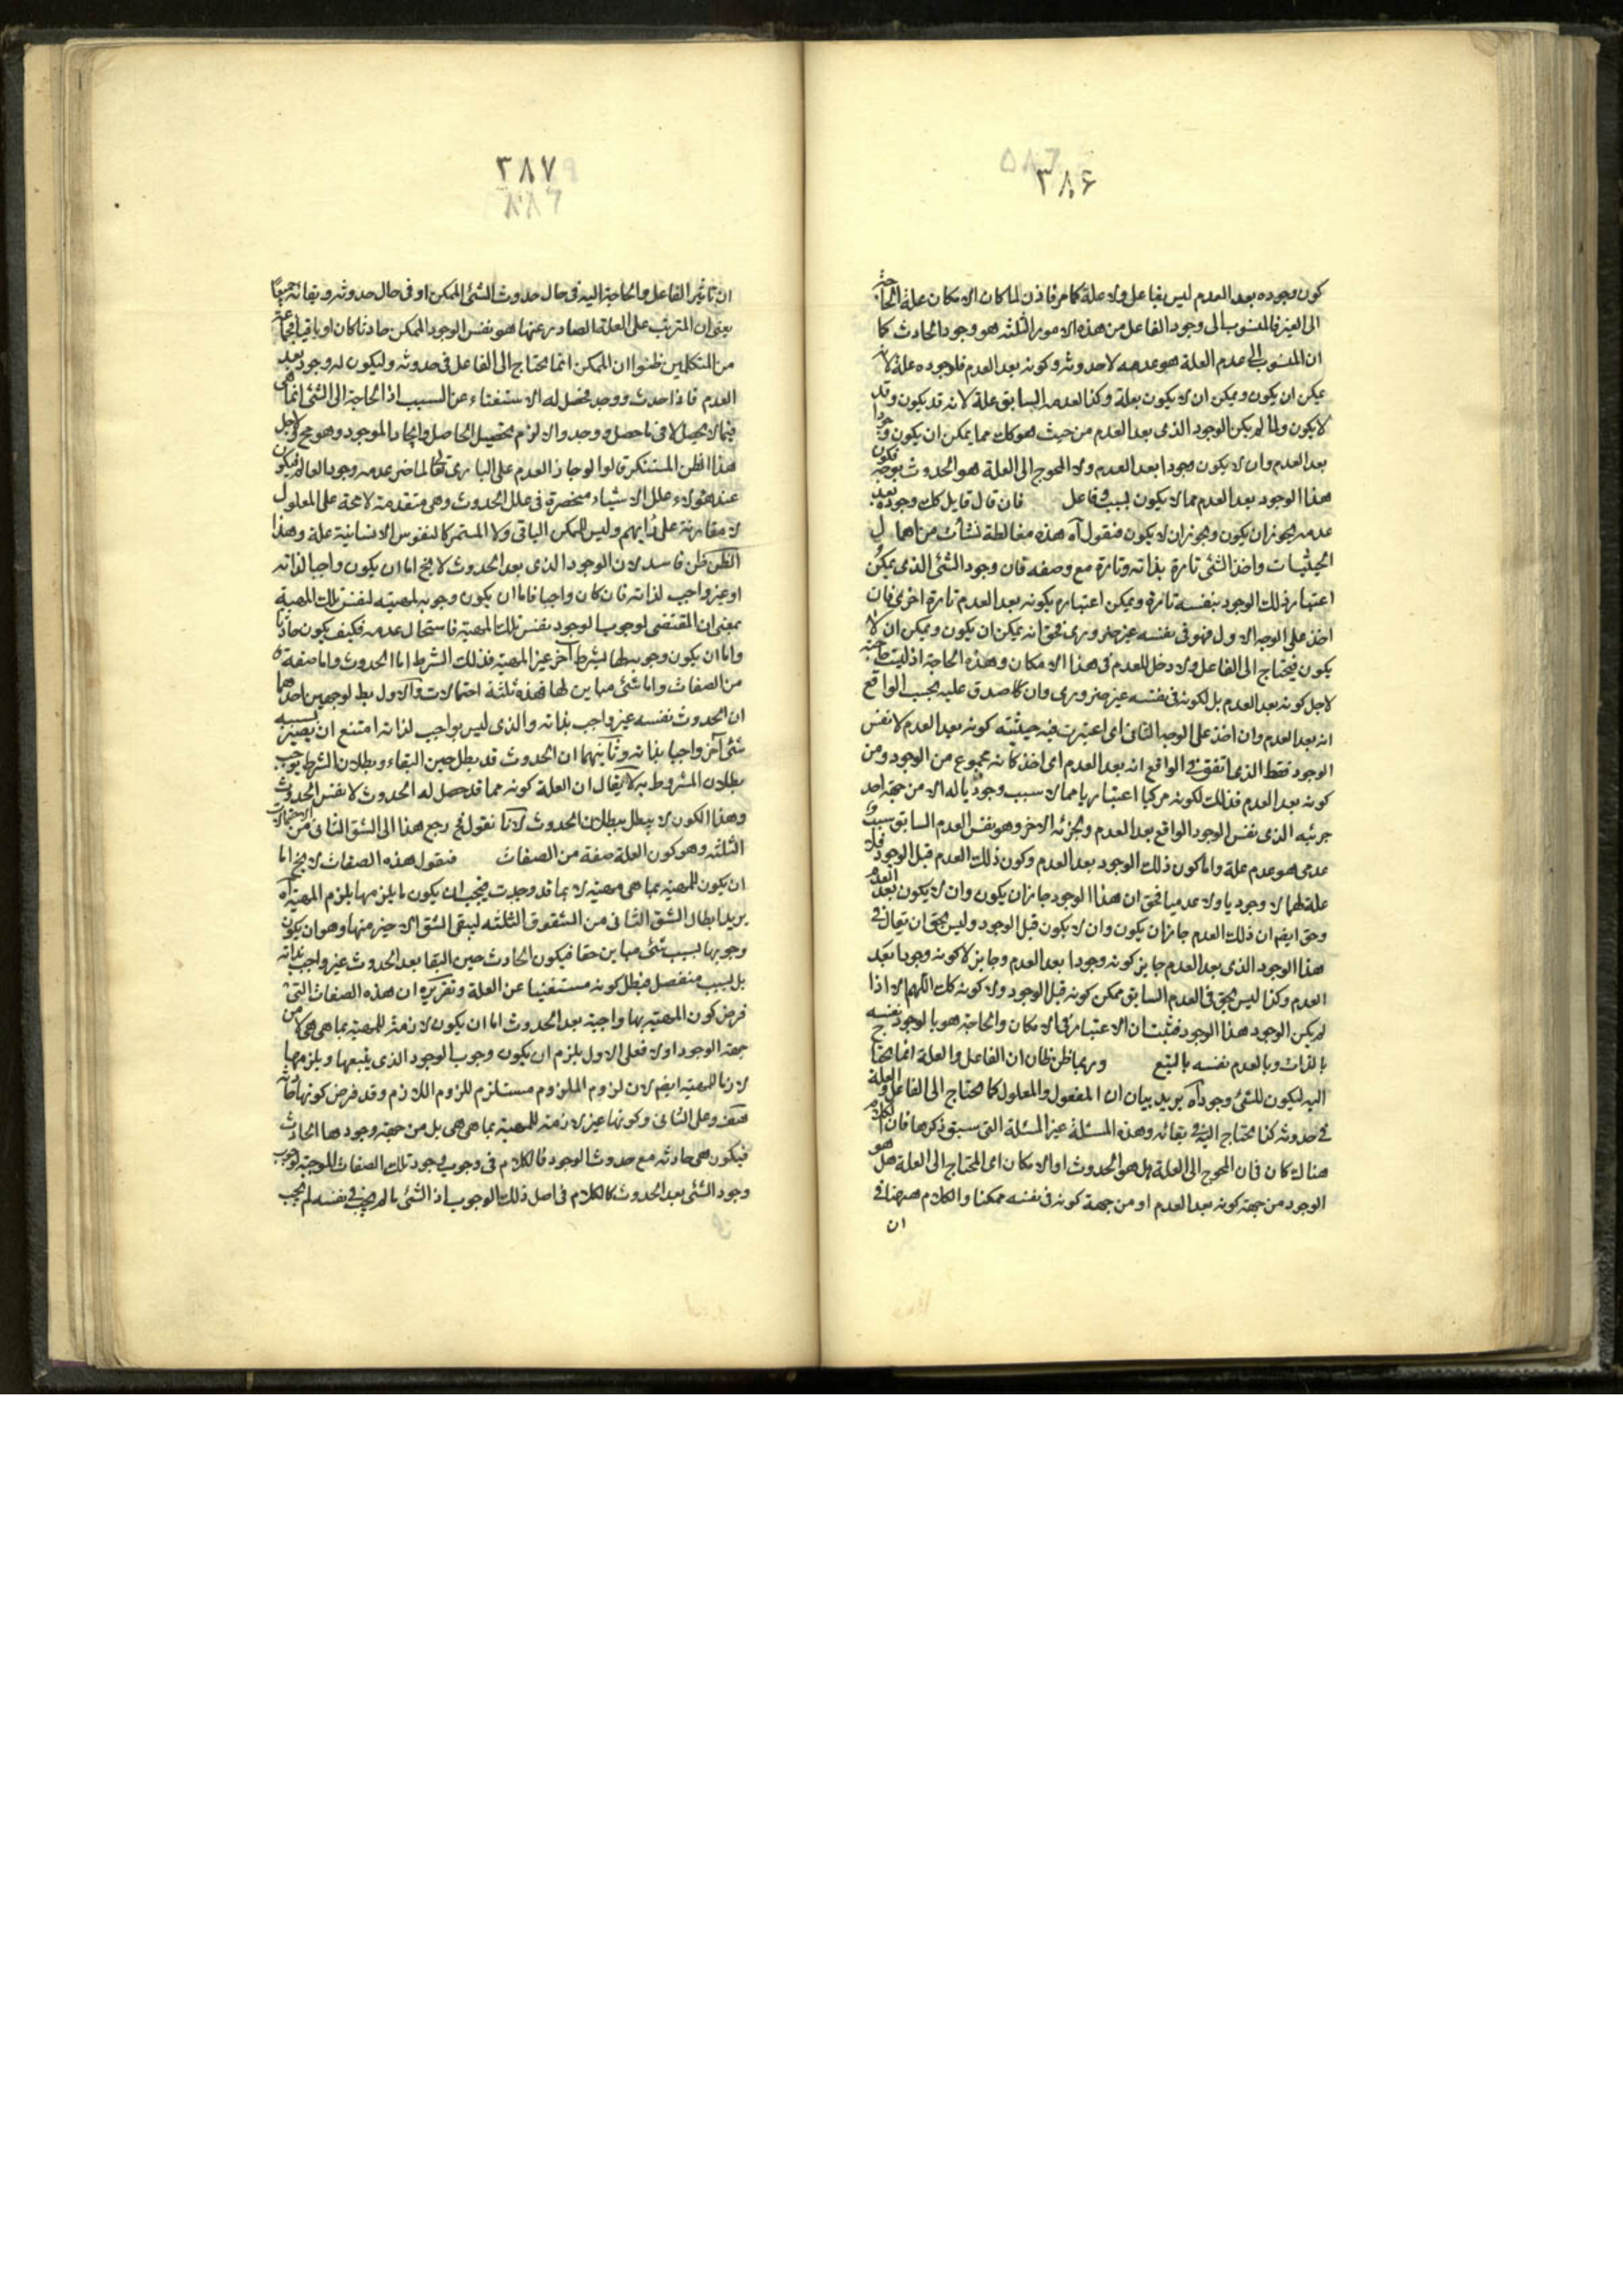 ٣٨۶
كون وجوده بعد العدم ليس بفاعل ولا علة كما مر فاذن لما كان الامكان علة الحاجة
الى الغير فالمنسوب الى وجود الفاعل من هذه الامور الثلثه هو وجود الحادث كما
ان المنسوب الى عدم العلة هو عدمه لا حدوثه وكونه بعد العدم فلوجوده علة لانه
يمكن ان يكون ويمكن ان لا يكون بعلة وكذا لعدمه السابق علة لانه قد يكون وقد
لا يكون ولما لم يكن الوجود الذى بعد العدم من حيث هو كك مما يمكن ان يكون وجودا
بعد العدم وان لا يكون وجودا بعد العدم ولا المحوج الى العلة هو الحدوث بوجه فكون
هذا الوجود بعد العدم مما لا يكون بسبب وفاعل فان قال قايل كك وجوده بعد
عدمه يجوز ان يكون ويجوز ان لا يكون فنقول آه هذه مغالطة نشأت من اهمال
الحيثيات واخذ الشئ تارة بذاته وتارة مع وصفه فان وجود الشئ الذى يمكن
اعتبار ذلك الوجود بنفسه تارة ويمكن اعتباره بكونه بعد العدم تارة اخرى فان
اخذ على الوجه الاول فهو فى نفسه غير ضرورى فحق انه يمكن ان يكون ويمكن ان لا
يكون فيحتاج الى الفاعل ولا دخل للعدم فى هذا الامكان وهذه الحاجة اذ ليست حاجته
لاجل كونه بعد العدم بل لكونه فى نفسه غير ضرورى وان كان صدق عليه بحسب الواقع
انه بعد العدم وان اخذ على الوجه الثانى اى اعتبرت فيه حيثيته كونه بعد العدم لا نفس
الوجود فقط الذى اتفق فى الواقع انه بعد العدم اى اخذ كانه مجموع من الوجود ومن
كونه بعد العدم فذلك لكونه مركبا اعتباريا مما لا سبب وجوديا له الا من جهة احد
جزئيه الذى نفس الوجود الواقع بعد العدم ولجزئه الاخر وهو نفس العدم السابق سبب
عدمى هو عدم علة واما كون ذلك الوجود بعد العدم وكون ذلك العدم قبل الوجود فلا
علة لهما لا وجوديا ولا عدميا فحق ان هذا الوجود جاز ان يكون وان لا يكون بعد العدم
وحق ايضا ان ذلك العدم جاز ان يكون وان لا يكون قبل الوجود وليس بحق ان يقال فى
هذا الوجود الذى بعد العدم جايز كونه وجودا بعد العدم وجايز لا كونه وجودا بعد
العدم وكذا ليس بحق فى العدم السابق ممكن كونه قبل الوجود ولا كونه كك اللهم الا اذا
لم يكن الوجود هذا الوجود فثبت ان الاعتبار فى الامكان والحاجة هو بالوجود نفسه
بالذات وبالعدم نفسه بالتبع وربما ظن ظان ان الفاعل والعلة انما يحتاج
اليه ليكون للشئ وجود آه يريد بيان ان المفعول والمعلول كما يحتاج الى الفاعل والعلة
فى حدوثه كذا يحتاج اليه فى بقائه وهذه المسئلة غير المسئلة التى سبق ذكرها فان الكلام
هناك كان فان المحوج الى العلة هل هو الحدوث او الامكان اى المحتاج الى العلة هل هو
الوجود من جهة كونه بعد العدم او من جهة كونه فى نفسه ممكنا والكلام ههنا فى
ان
٣٨٧
ان تاثير الفاعل والحاجة اليه فى حال حدوث الشئ الممكن او فى حال حدوثه وبقائه جميعا
يعنى ان المترتب على العلة الصادر عنها هو نفس الوجود الممكن حادثا كان او باقيا فجماعة
من المتكلمين ظنوا ان الممكن انما يحتاج الى الفاعل فى حدوثه وليكون له وجود بعد
العدم فاذا حدث ووجد فحصل له الاستغناء عن السبب اذ الحاجة الى الشئ انما هى
فيما لا يحصل لا فى ما حصل ووجد والا لزم تحصيل الحاصل وايجاد الموجود وهو مح ولاجل
هذا الظن المستنكر قالوا لو جاز العدم على البارى تعالى لما ضر عدمه وجود العالم فيكون
عند هؤلاء علل الاشياء منحصرة فى علل الحدوث وهى متقدمة لا محة على المعلول
لا مقارنة على رايهم وليس للممكن الباقى ولا المستمر كالنفوس الانسانية علة وهذا
الظن ظن فاسد لان الوجود الذى بعد الحدوث لا يخ اما ان يكون واجبا لذاته
او غير واجب لذاته فان كان واجبا فاما ان يكون وجوبه لمهيته لنفس تلك المهية
بمعنى ان المقتضى لوجوب الوجود نفس تلك المهية فاستحال عدمه فكيف يكون حادثا
واما ان يكون وجوبها بشرط آخر غير المهية فذلك الشرط اما الحدوث واما صفة
من الصفات واما شئ مباين لها فهذه ثلثة احتمالات والاول بط لوجهين احدهما
ان الحدوث نفسه غير واجب بذاته والذى ليس بواجب لذاته امتنع ان يصير بسببه
شئ آخر واجبا بذاته وثانيهما ان الحدوث قد بطل حين البقاء وبطلان الشرط يوجب
بطلان المشروط به لا يقال ان العلة كونه مما قد حصل له الحدوث لا نفس الحدوث
وهذا الكون لا يبطل ببطلان الحدوث لانا نقول فح رجع هذا الى الشق الثانى من الاحتمالات
الثلثه وهو كون العلة صفة من الصفات فنقول هذه الصفات لا يخ اما
ان يكون للمهية بما هى مهية لا بما قد وجدت فيجب ان يكون ما يلزمها يلزم المهية آه
يريد ابطال الشق الثانى من الشقوق الثلثه ليبقى الشق الاخير منها وهو ان يكون
وجوبها بسبب شئ مباين حقا فيكون الحادث حين البقا بعد الحدوث غير واجب بذاته
بل بسبب منفصل فبطل كونه مستغنيا عن العلة وتقريره ان هذه الصفات التى
فرض كون المهية بها واجبة بعد الحدوث اما ان يكون لازمة للمهية بما هى هى لا من
جهة الوجود او لا فعلى الاول يلزم ان يكون وجوب الوجود الذى يتبعها ويلزمها
لازما للمهية ايضا لان لزوم الملزوم مستلزم للزوم اللازم وقد فرض كونها حادثه
هف وعلى الثانى وكونها غير لازمة للمهية بما هى هى بل من جهة وجودها الحادث
فيكون هى حادثه مع حدوث الوجود فالكلام فى وجوب وجود تلك الصفات الموجبة لوجوب
وجود الشئ بعد الحدوث كالكلام فى اصل ذلك الوجوب اذ الشئ ما لم يجب فى نفسه لم يجب